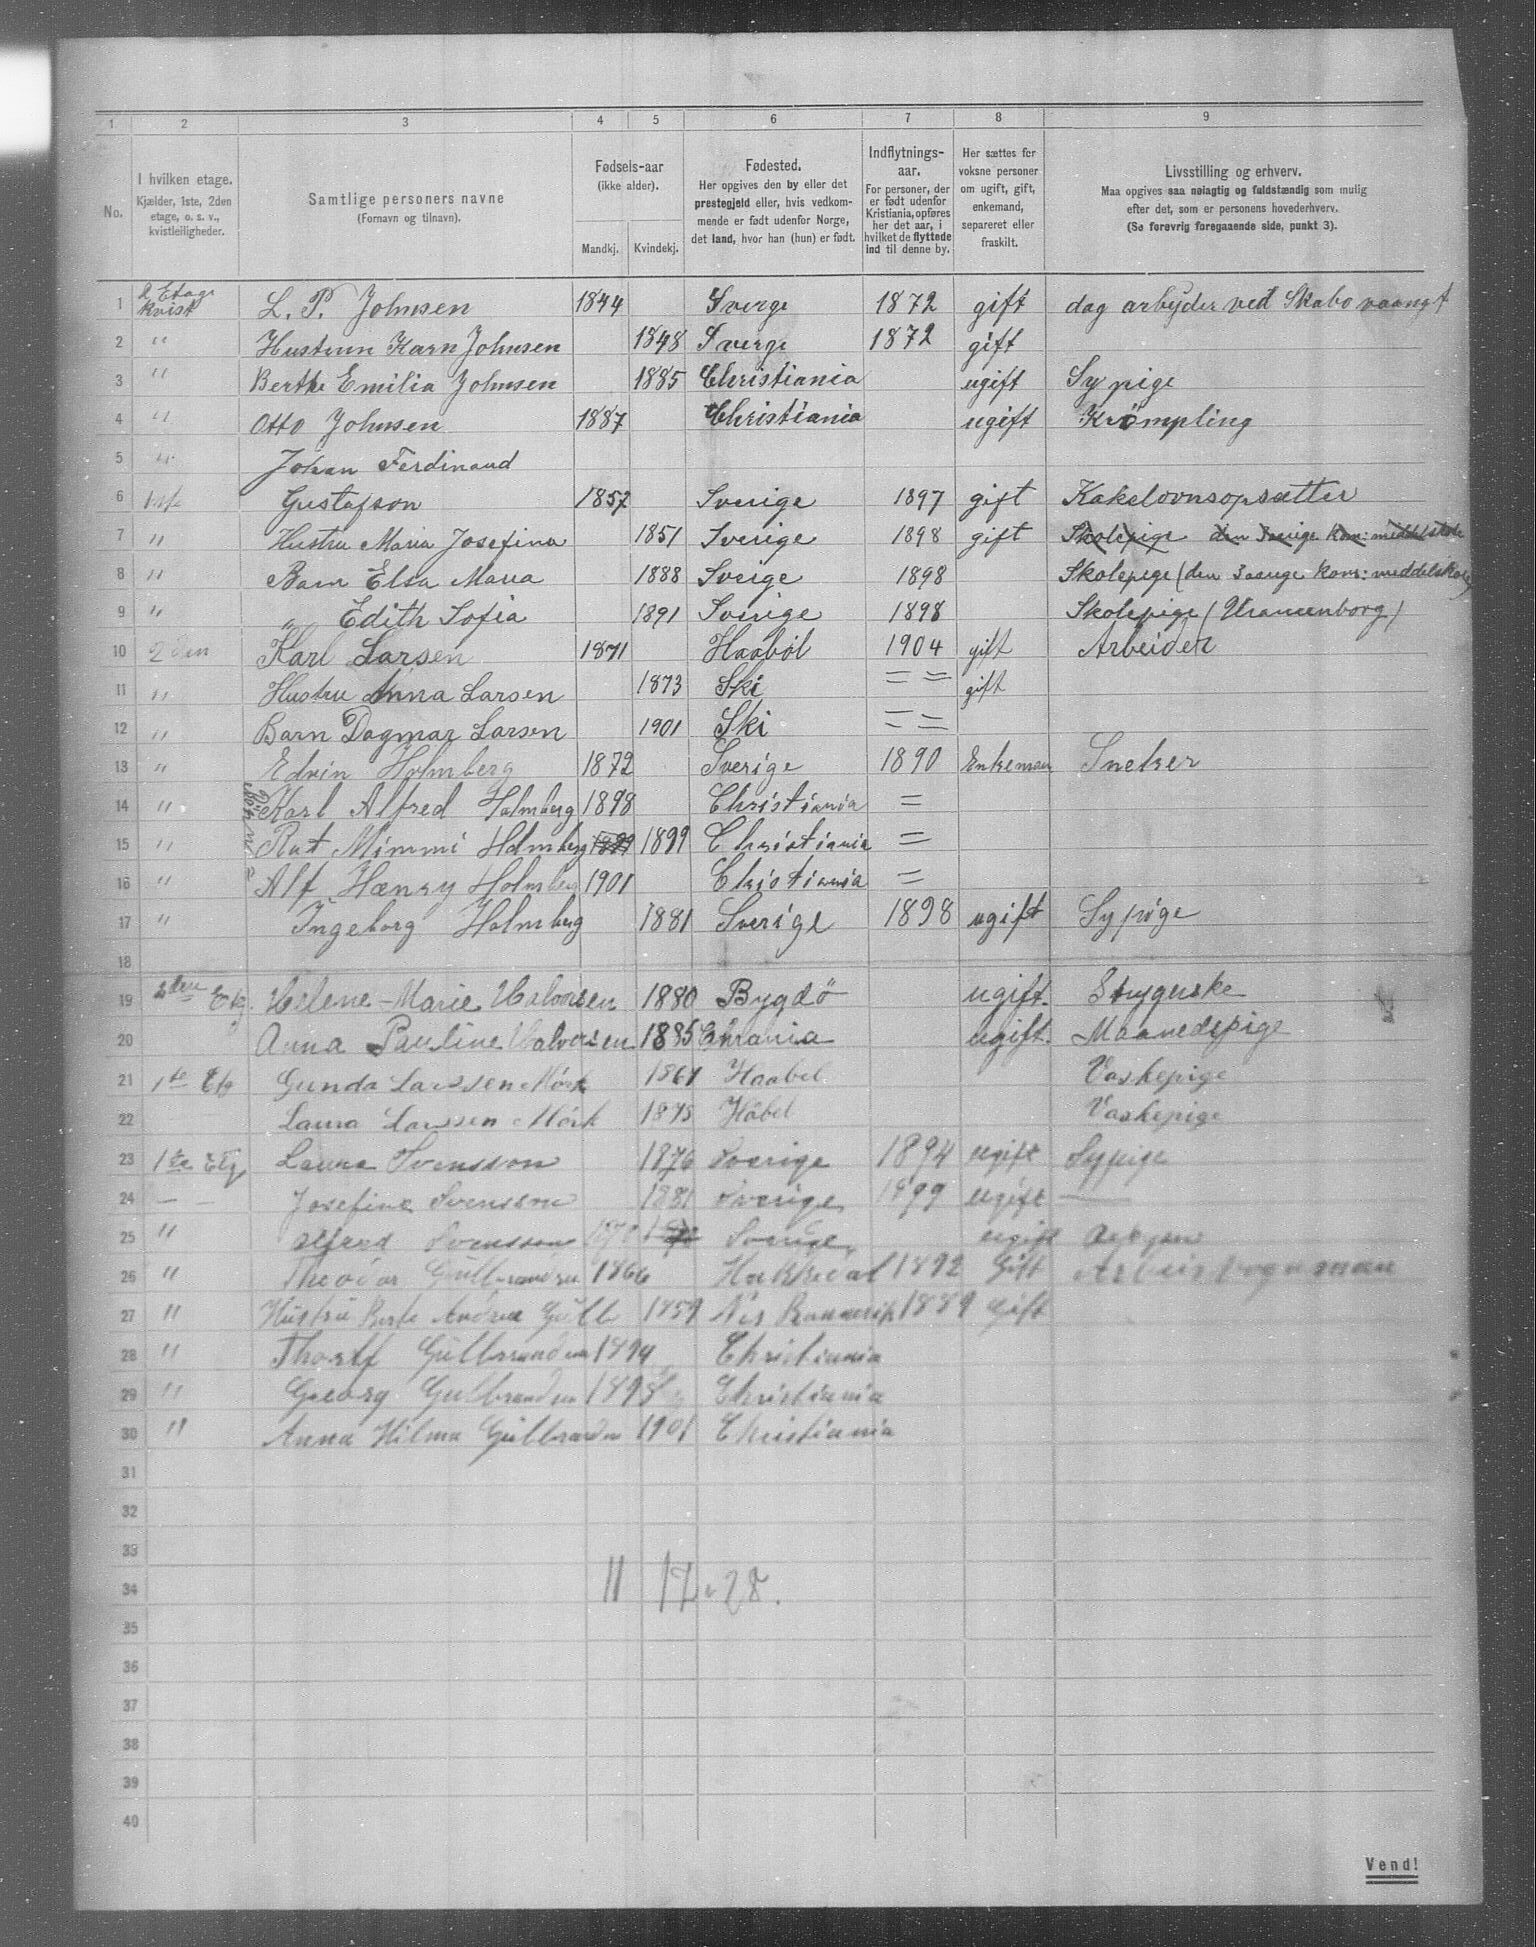 1 2 3 4 5 6 7 8 9
No.
I hvilken etage.
Kjælder, 1ste, 2den
etage, o. s. v.,
kvistleiligheder.
Samtlige personers navne
(Fornavn og tilnavn).
Fødsels-aar
(ikke alder).
Mandkj. Kvindekj.
Fødested.
Her opgives den by eller det
prestegjeld eller, hvis vedkom-
mende er født udenfor Norge,
det land, hvor han (hun) er født.
Indflytnings-
aar.
For personer, der
er født udenfor
Kristiania, opføres
her det aar, i
hvilket de flyttede
ind til denne by.
Her sættes for
voksne personer
om ugift, gift,
enkemand,
separeret eller
fraskilt.
Livsstilling og erhverv.
Maa opgives saa nøiagtig og fuldstændig som mulig
efter det, som er personens hovederhverv.
(Se forøvrig foregaaende side, punkt 3).
1 2 Etage kvist L. P. Johnsen 1844 Sverge 1872 gift dag arbyder ved Skabo vaangf
2 " Hustrun Karn Johnsen 1848 Sverge 1872 gift
3 " Berthe Emilia Johnsen 1885 Christiania ugift Sypige
4 " Otto Johnsen 1887 Christiania ugift Krömpling
5 " Johan Ferdinand
6 1ste Gustafson 1857 Sverige 1897 gift Kakelovnsopsætter
7 " Hustru Maria Josefina 1851 Sverige 1898 gift Skolepige den 3aarige kom: meddelskole
8 " Barn Elsa Maria 1888 Sverige 1898 Skolepige (den 3 aarige kom: meddelskole)
9 " " Edith Sofia 1891 Sverige 1898 Skolepige (Uranienborg)
10 2den Karl Larsen 1871 Haaböl 1904 gift Arbeider
11 " Hustru Anna Larsen 1873 Ski = = gift
12 " Barn Dagmar Larsen 1901 Ski = =
13 " Edvin Holmberg 1872 Sverige 1890 Enkeman Snekker
14 " Karl Alfred Holmberg 1898 Christiania =
15 " Rut Mimmi Holmberg 1899 1899 Christiania =
16 " Alf Hænry Holmberg 1901 Christiania =
17 " Ingeborg Holmberg 1881 Sverige 1898 ugift Sypige
18
19 2den Etg. Helene-Marie Halvorsen 1880 Bygdö ugift. Strygerske
20 Anna Pauline Halvorsen 1885 Chrania ugift. Maanedspige
21 1ste Etg Gunda Larssen Mörk 1867 Haabel Vaskepige
22 Laura Larssen Mörk 1875 Håbel Vaskepige
23 1ste Etg Laura Svensson 1876 Sverige 1894 ugift Sypige
24 — — Josefine Svensson 1881 Sverige 1899 ugift —
25 " Alfred Svensson 1870 Sverige ugift
26 " Theodor Gulbrandsen 1866 Hakkedal 1892 Gift
27 " Hustru Berte Andrea Gulb 1859 Nes Romerik 1889 Gift
28 " Thorlf Gulbrandsen 1894 Christiania
29 " Georg Gulbrandsen 1898 Christiania
30 " Anna Hilma Gulbrandsen 1901 Christiania
31
32
33
34 11 17 - 28.
35
36
37
38
39
40
Vend!